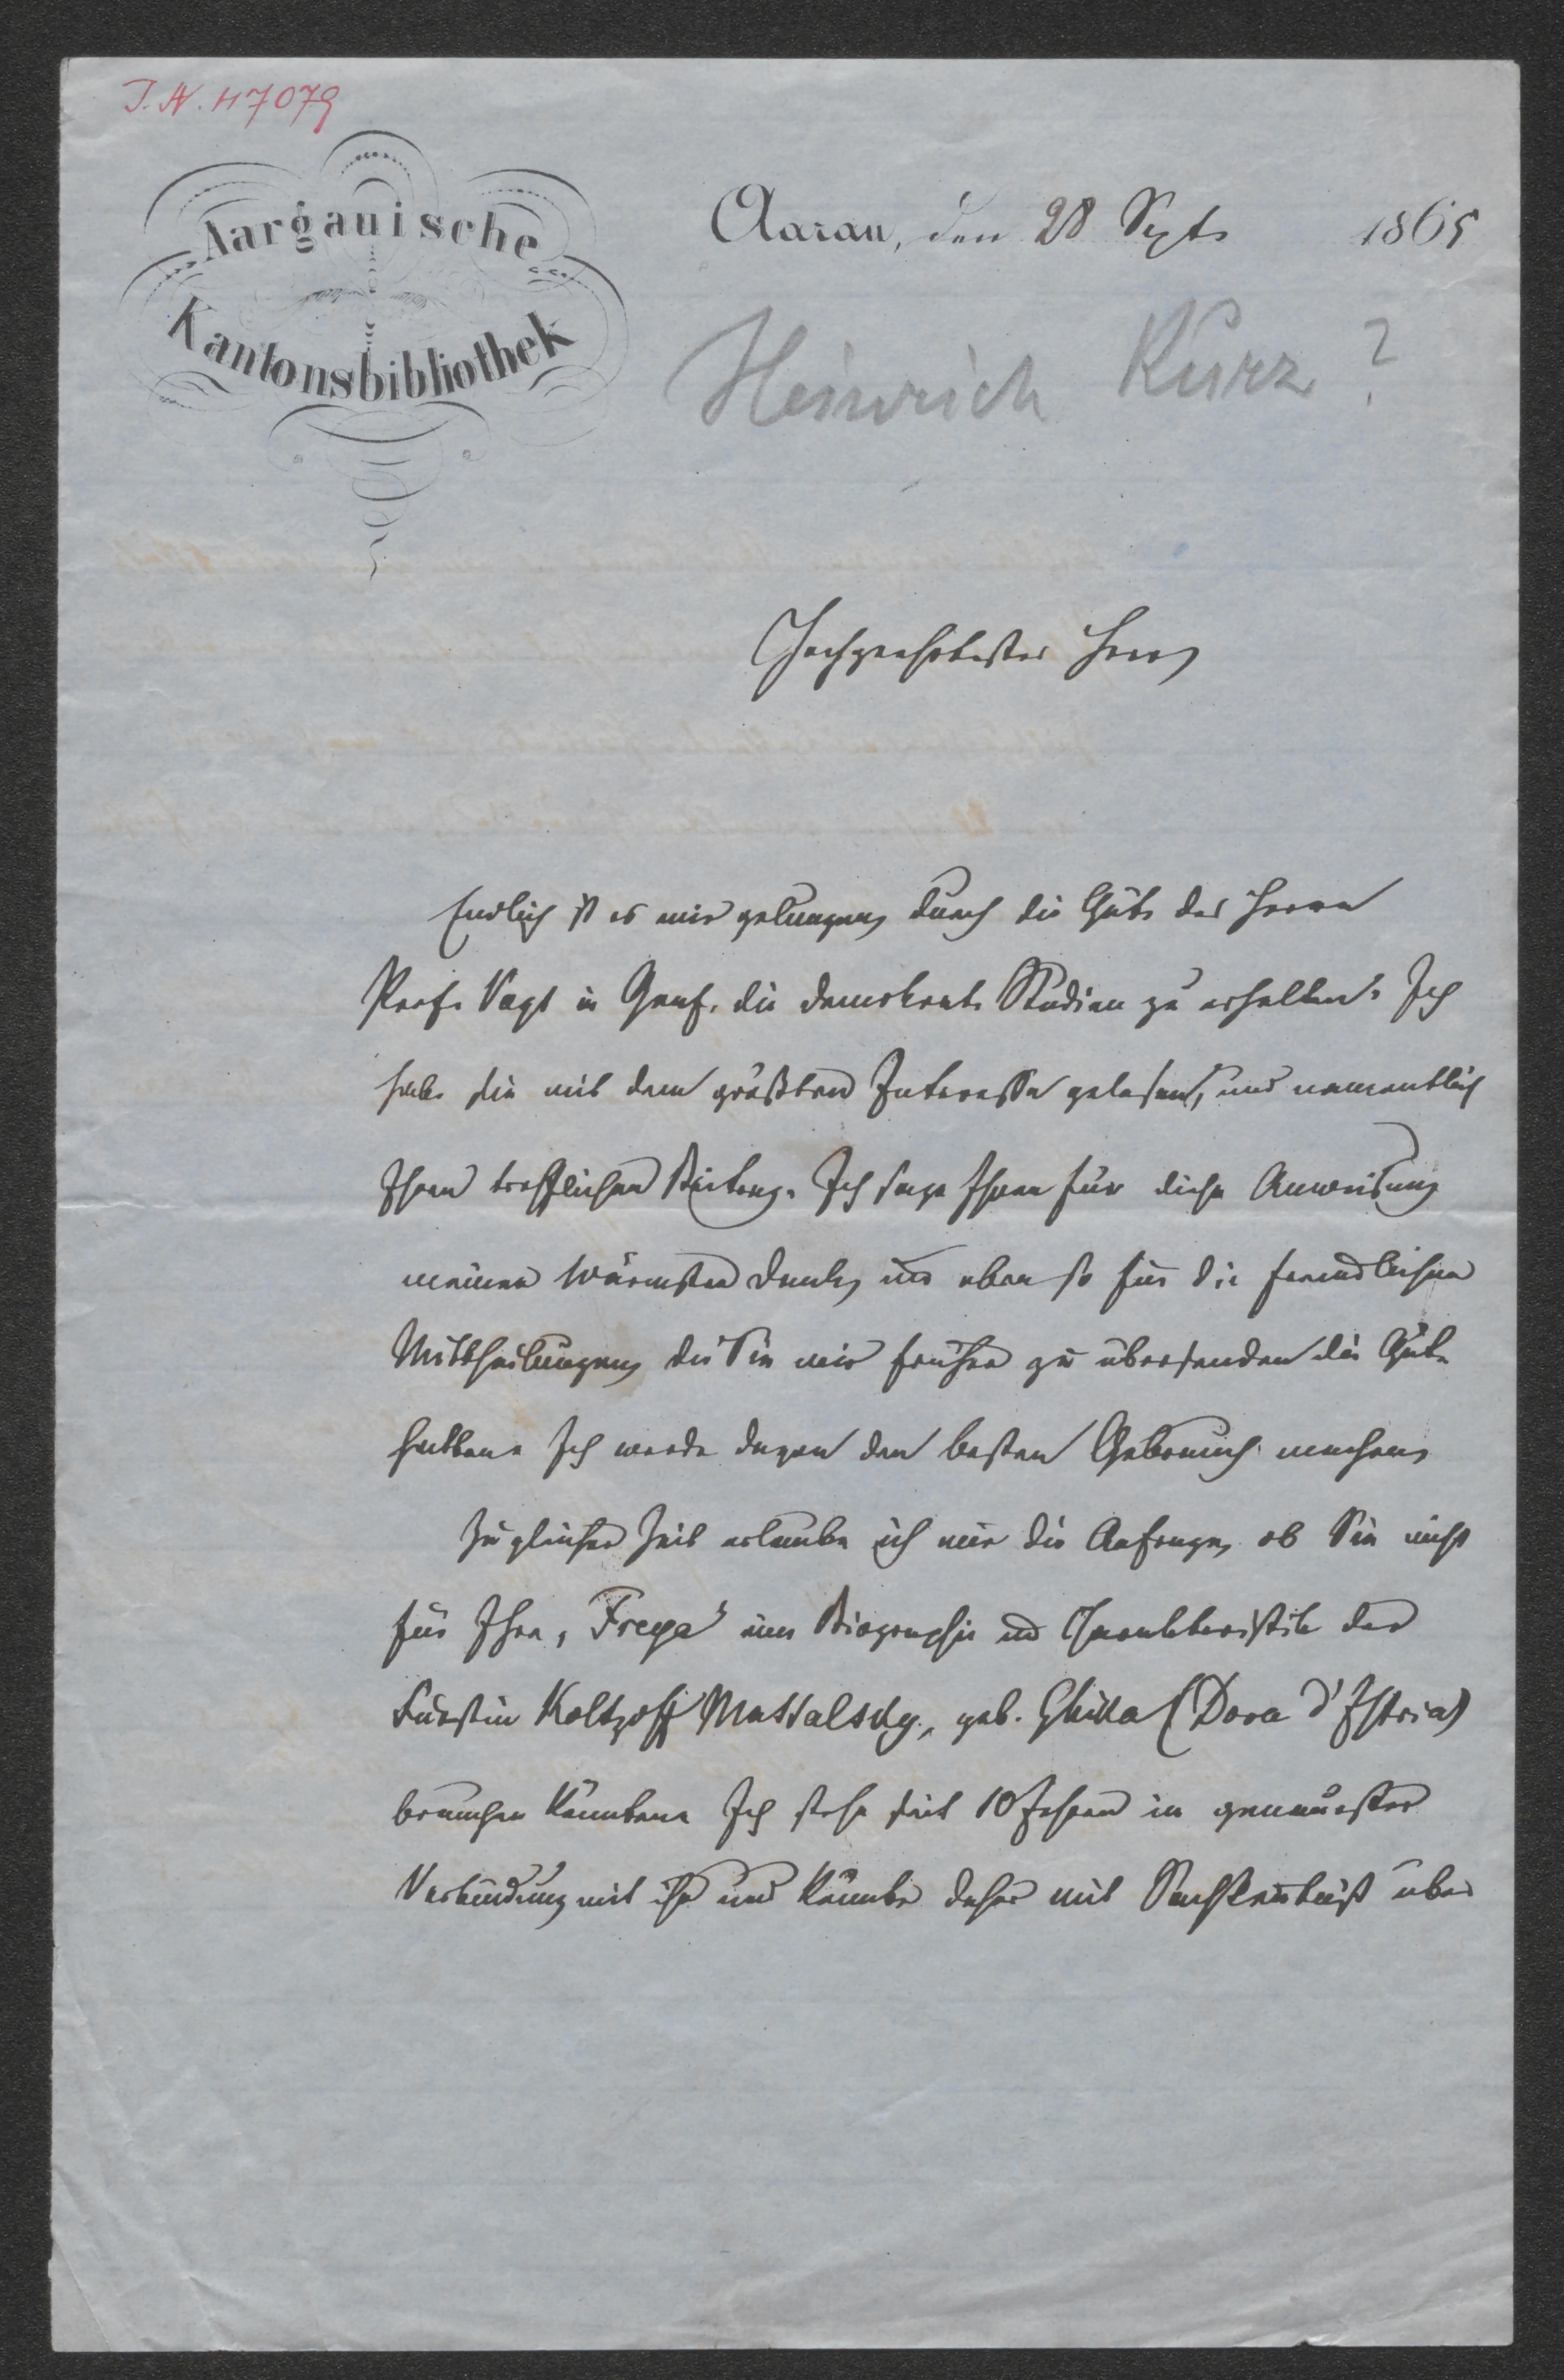 I. N. 47079
Aargauische
Kantonsbibliothek
Aarau, den 28 Sept. 1865
Heinrich Kurz?
Hochgeehrtester Herr,
Endlich ist es mir gelungen, durch die Güte des Herrn
Prof. Vogt in Genf, die demokrat. Studien zu erhalten. Ich
habe sie mit dem größten Interesse gelesen, und namentlich
Ihren trefflichen Beitrag. Ich sage Ihnen für diese Anweisung
meinen wärmsten Dank, und eben so für die freundlichen
Mittheilungen, die Sie mir früher zu übersenden die Güte
hatten. Ich werde davon den besten Gebrauch machen.
Zu gleicher Zeit erlaube ich mir die Anfrage, ob Sie nicht
für Ihre „Freya" eine Biographie und Charakteristik der
Fürstin Koltzoff Massalsky, geb. Ghika (Dora d'Istria)
brauchen könnten. Ich stehe seit 10 Jahren in genauester
Verbindung mit ihr und könnte daher mit Sachkenntniß über